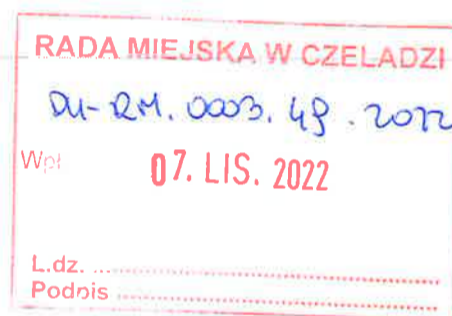 RADA MIEJSKA W CZELADZI
DU-RM. 0003. 49. 2022
Wpł
07. LIS. 2022
L.dz. ...
Podpis ...